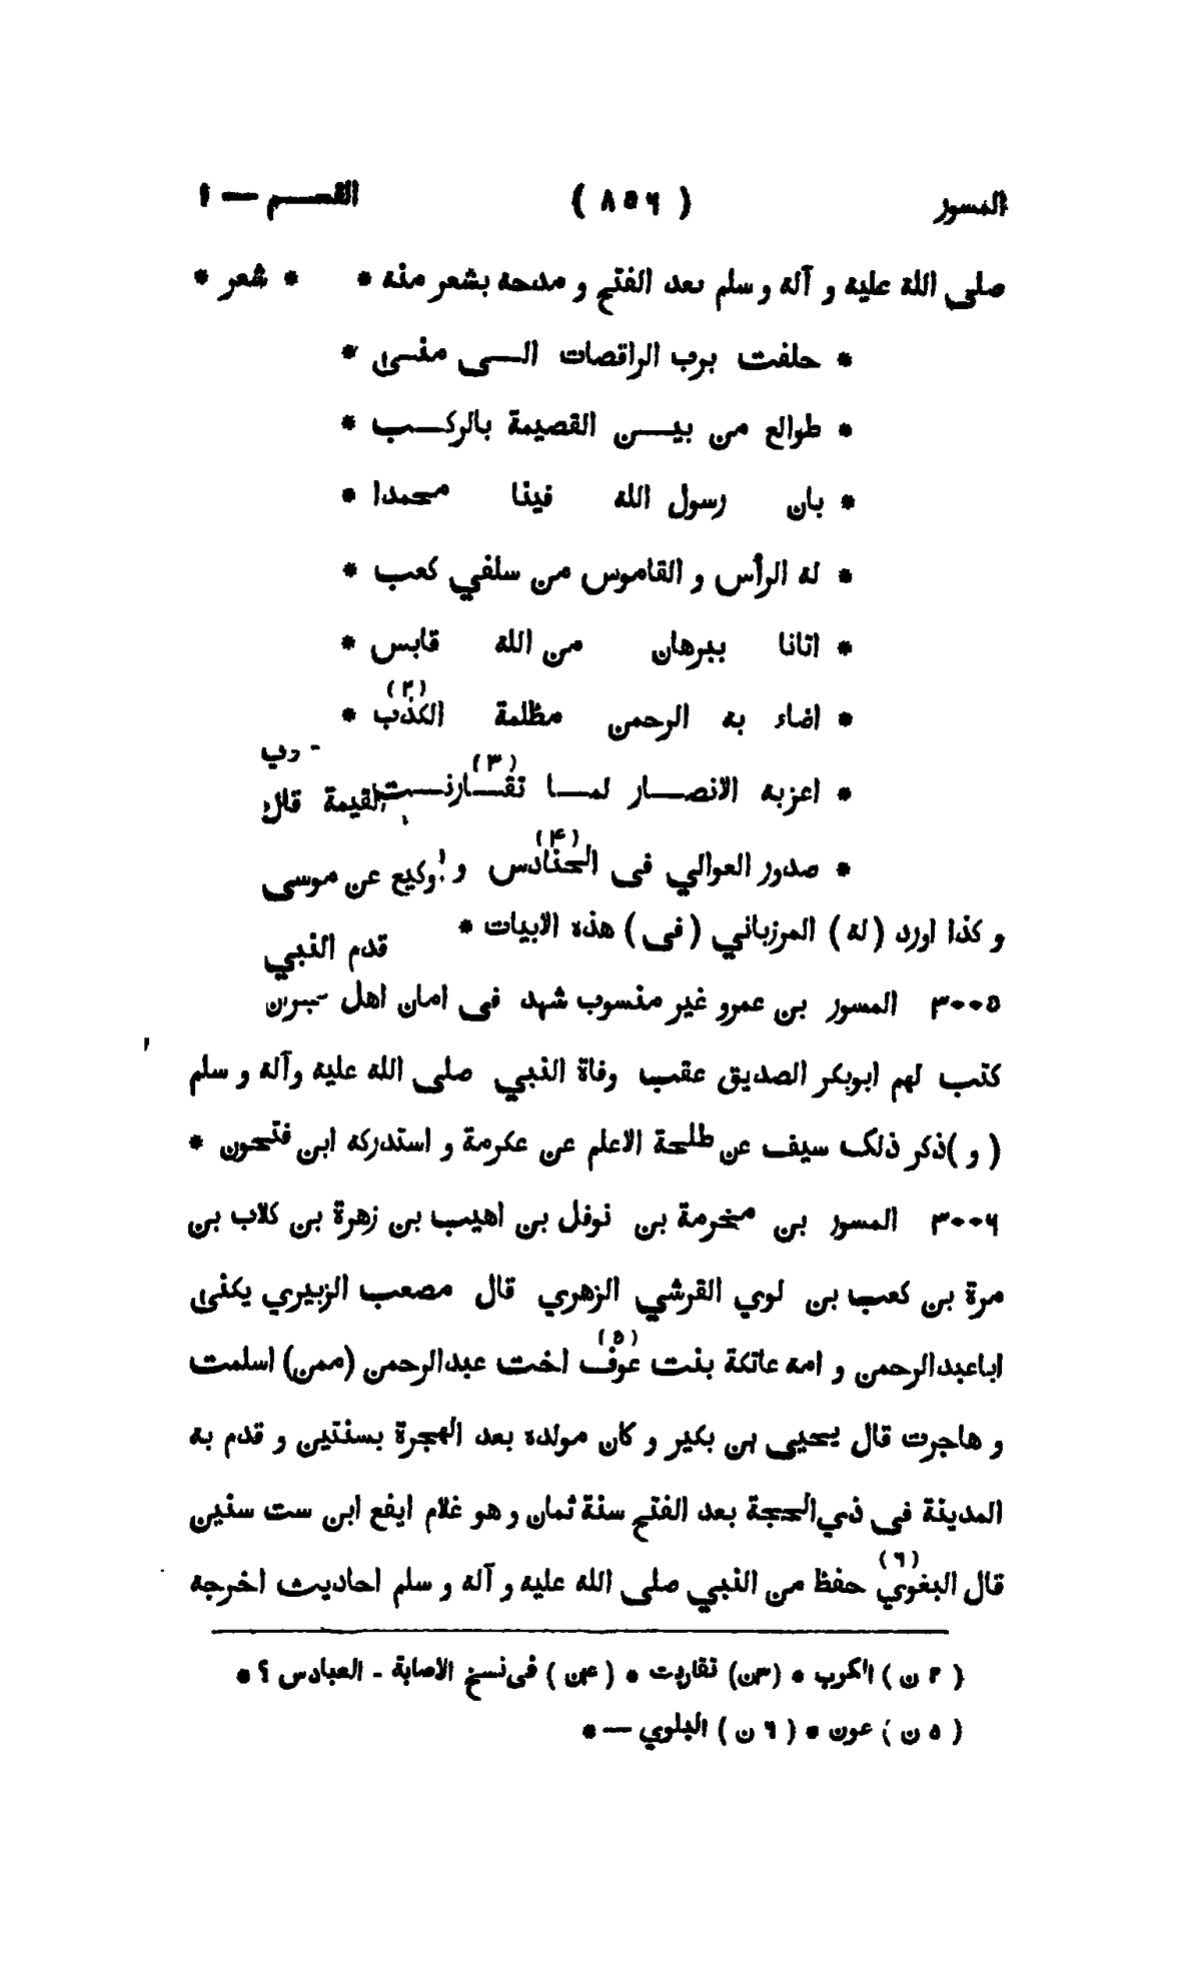 المسور ( ٨٥٦ ) القســـم — ١
صلى الله عليه و آله و سلم بعد الفتح و مدحه بشعر منه * * شعر *
* حلفت برب الراقصات الــى منــى *
* طوالع من بيـــن القصيمة بالركــب *
* بان رسول الله فينا محمدا *
* له الرأس و القاموس من سلفي كعب *
* اتانا ببرهان من الله قابس *
* اضاء به الرحمن مظلمة الكذب (٢) *
* اعزبه الانصــار لمــا تقــارنــت (٣) القيمة قال
* صدور العوالي فى الحنادس (٤) و وكيع عن موسى
و كذا اورد ( له ) المرزباني ( فى ) هذه الابيات *
قدم النبي
٣٠٠٥ المسور بن عمرو غير منسوب شهد فى امان اهل
كتب لهم ابوبكر الصديق عقب وفاة النبي صلى الله عليه وآله و سلم
( و )ذكر ذلك سيف عن طلحة الاعلم عن عكرمة و استدركه ابن فتحون *
٣٠٠٦ المسور بن مخرمة بن نوفل بن اهيب بن زهرة بن كلاب بن
مرة بن كعب بن لوي القرشي الزهري قال مصعب الزبيري يكنى
اباعبدالرحمن و امه عاتكة بنت عوف (٥) اخت عبدالرحمن (ممن) اسلمت
و هاجرت قال يحيى بن بكير و كان مولده بعد الهجرة بسنتين و قدم به
المدينة فى ذي‌الحجة بعد الفتح سنة ثمان و هو غلام ايفع ابن ست سنين
قال البغوي (٦) حفظ من النبي صلى الله عليه و آله و سلم احاديث اخرجه
( ٢ ن ) الكرب * (٣ن) تقاربت * ( ٤ن ) فى نسخ الاصابة - العبادس ؟ *
( ٥ ن ) عون * ( ٦ ن ) البلوي — *